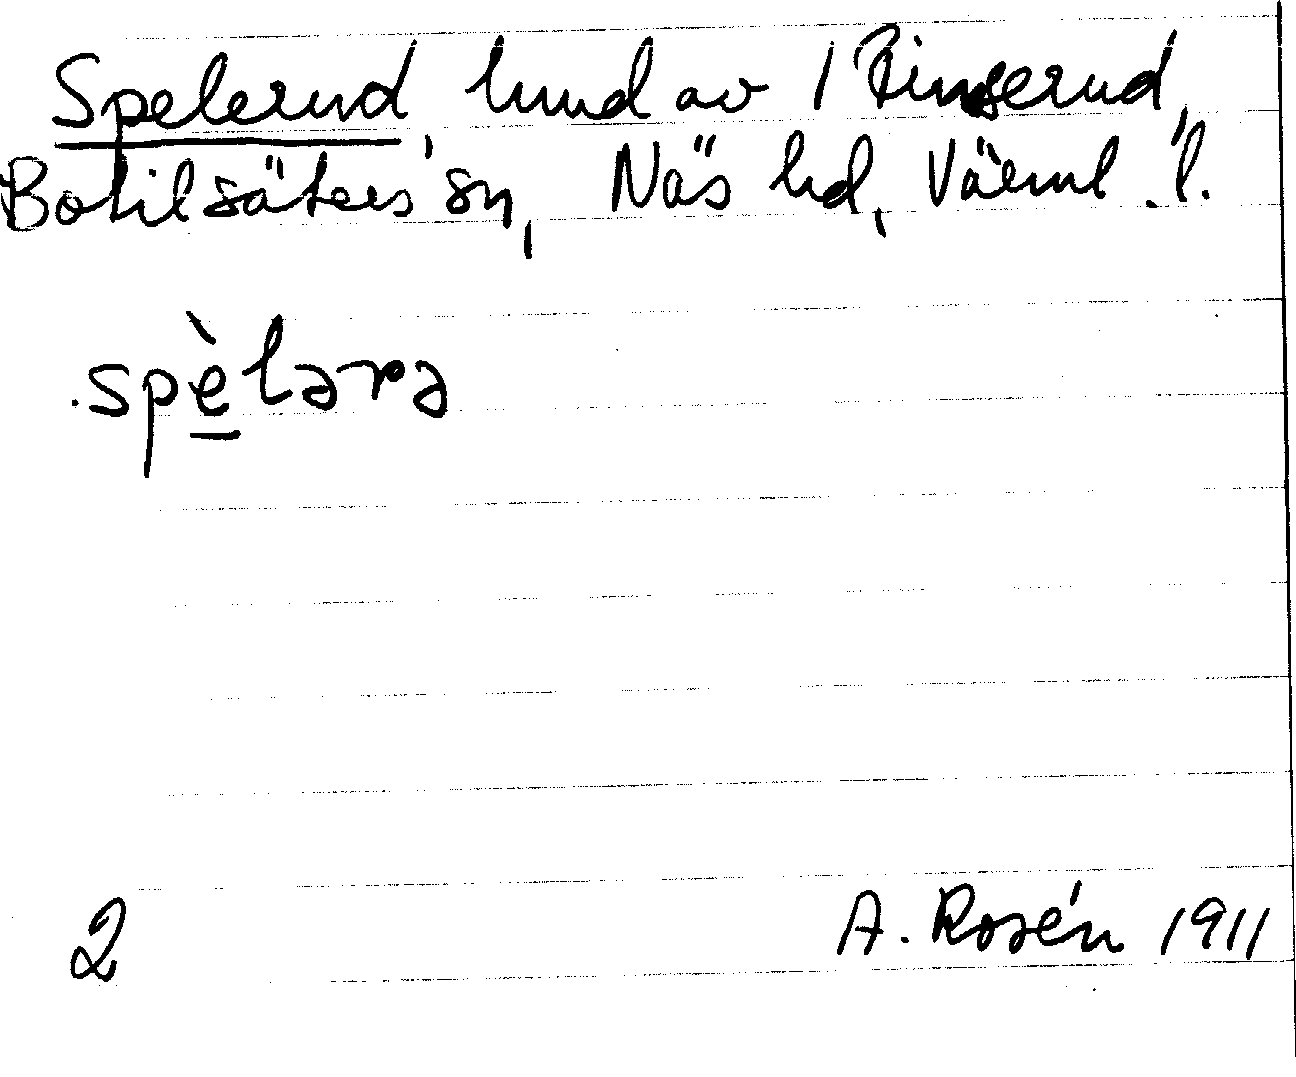 Spelerud, hmd av 1 Ringerud,
Botilsäters sn, Näs hd, Värml. l.
.spè̱lərə
2
A. Rosén 1911